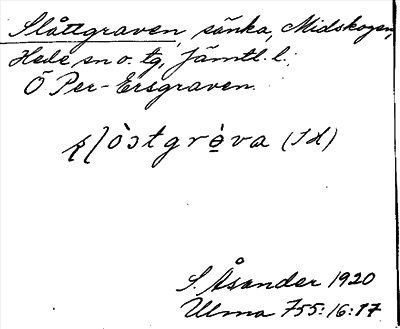 Slåttgraven, sänka, Midskogen,
Hede sn o. tg, Jämtl. l.;
Ö Per-Ersgraven.
(Id)
S. Åsander 1920
Ulma 755:16:17